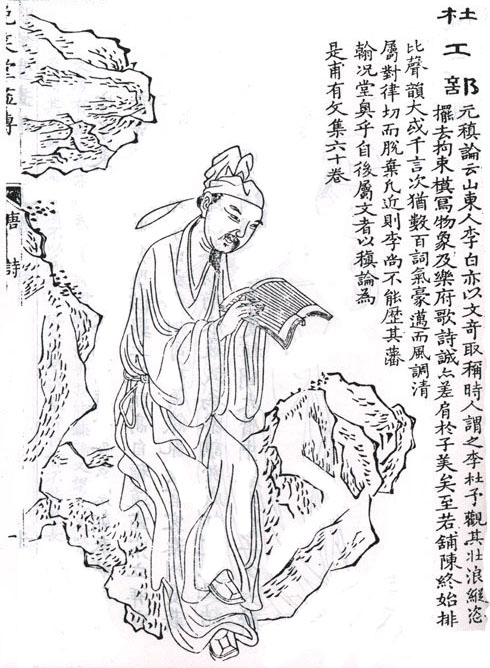 杜工部
元稹論云山東人李白亦以文奇取稱時人謂之李杜予觀其壯浪縱恣
擺去拘束模寫物象及樂府歌詩誠亦差肩於子美矣至若舖陳終始排
比聲韻大或千言次猶數百詞氣豪邁而風調清
屬對律切而脫棄凡近則李尚不能歷其藩
翰况堂奧乎自後屬文者以稹論為
是甫有文集六十卷
笑堂畫傳
唐詩
一